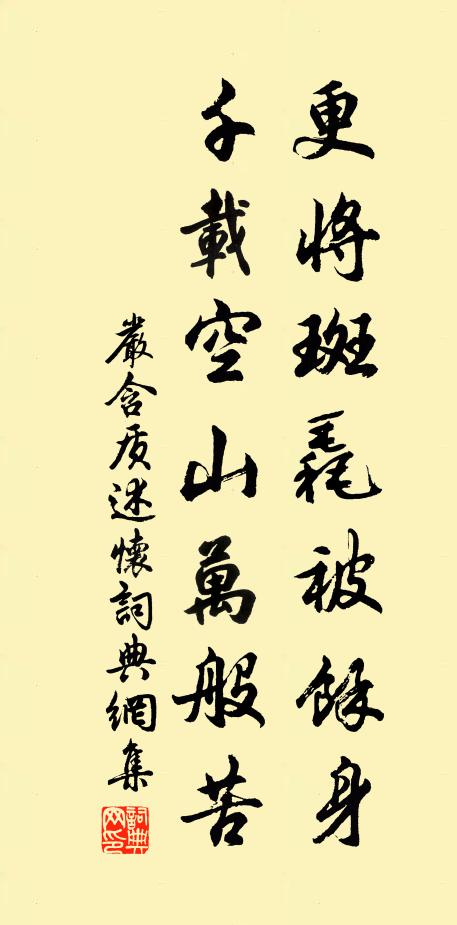 更將斑毳被餘身
千載空山萬般苦
嚴含质述懷詞典網集
詞典网印